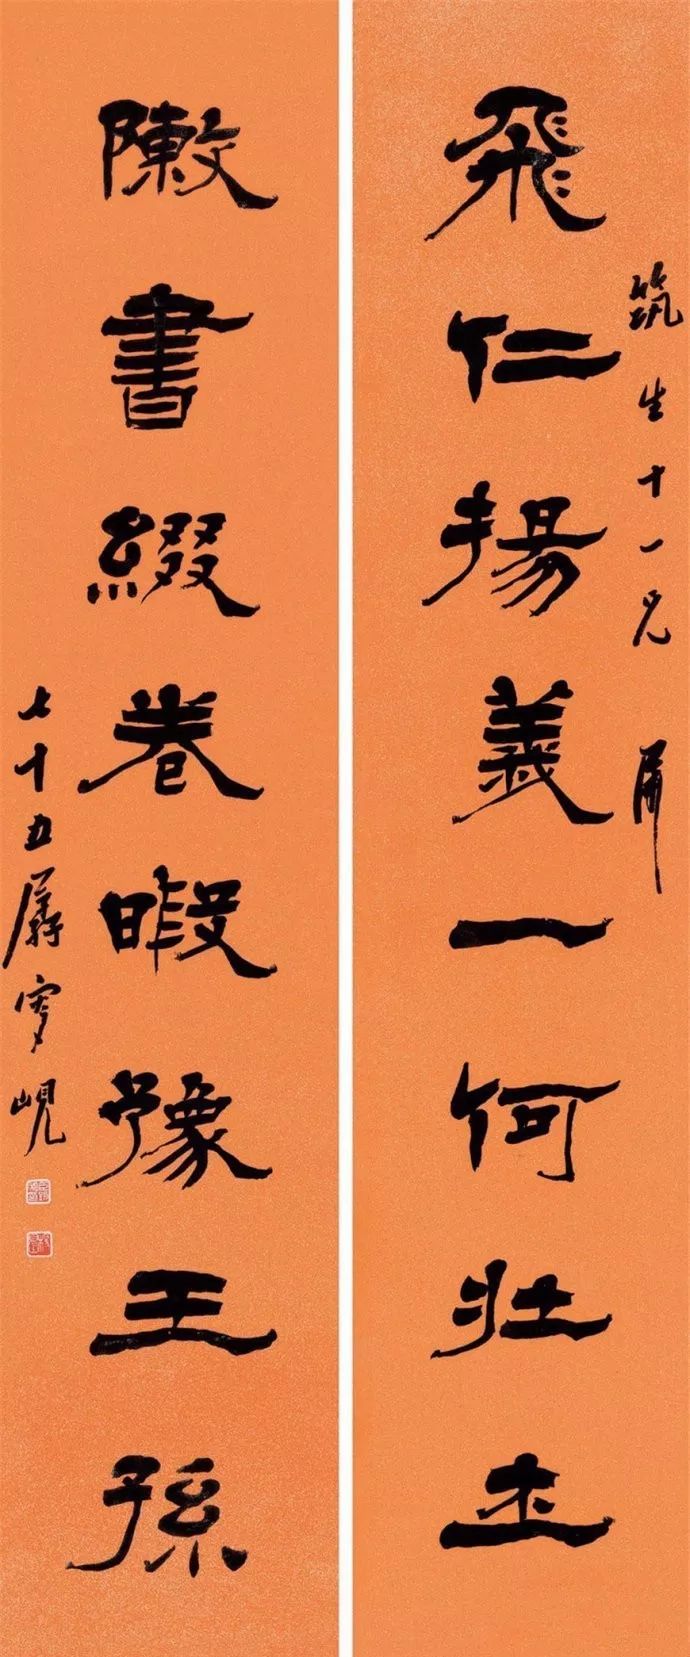 筑生十一兄屬
飛仁揚義一何壯士
敶書綴卷暇豫王孫
七十五孱叟峴